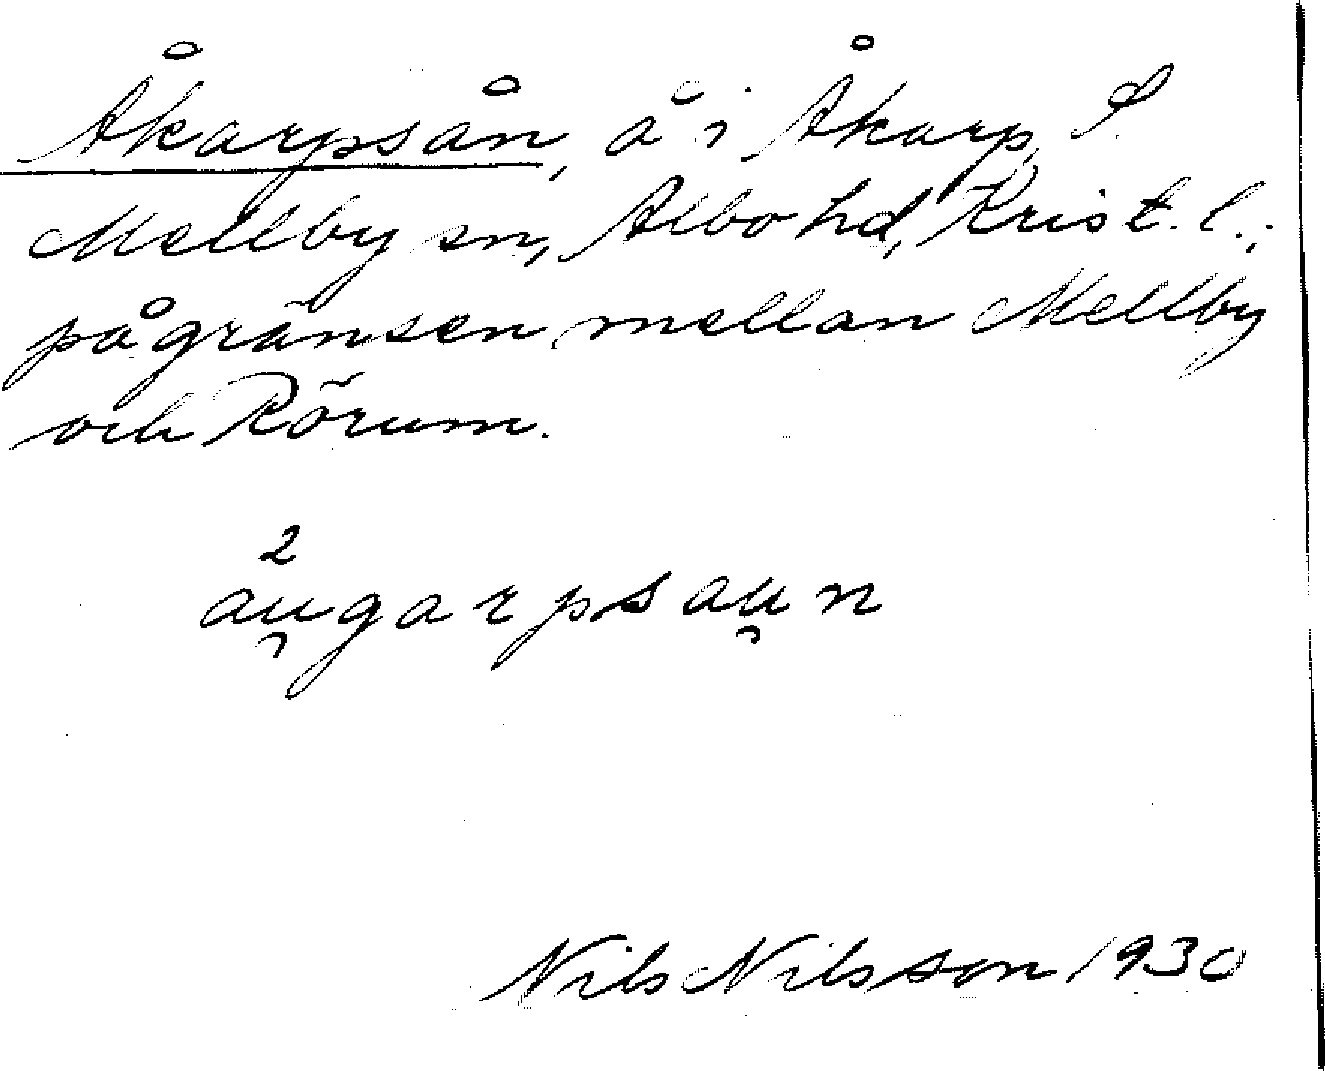 Åkarpsån, å i Åkarp, S.
Mellby sn, Albo hd, Krist. l.;
på gränsen mellan Mellby
och Rörum.
2
au̯garpsau̯n
Nils Nilsson 1930